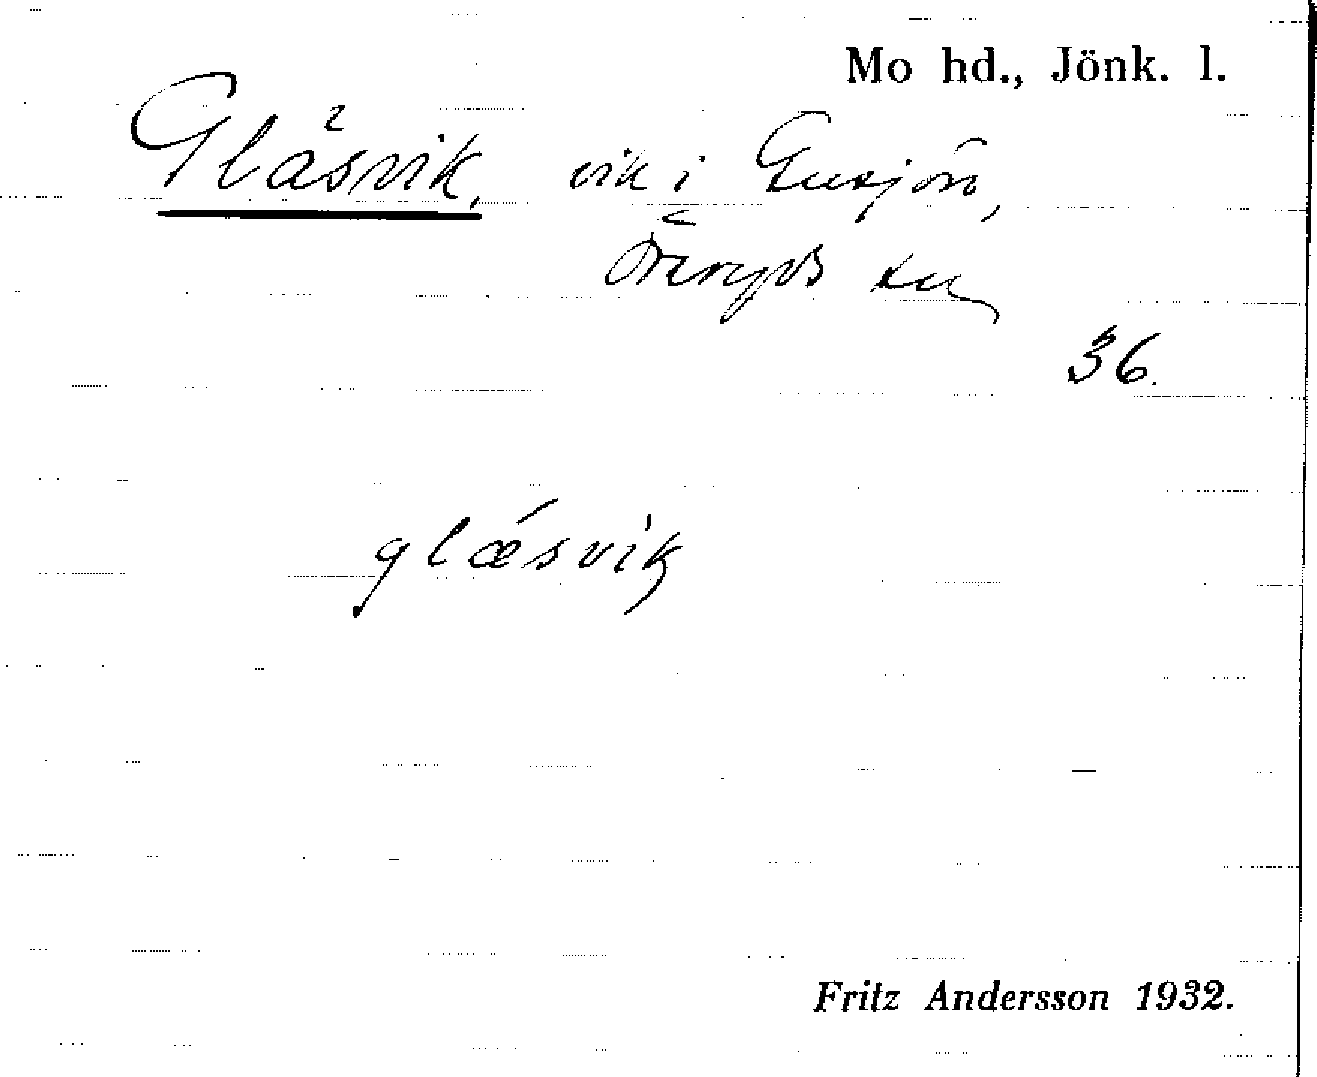 Mo hd., Jönk. l.
Gläsvik, vik i Gussjön,
Öreryds sn
36.
glǽsvik
Fritz Andersson 1932.